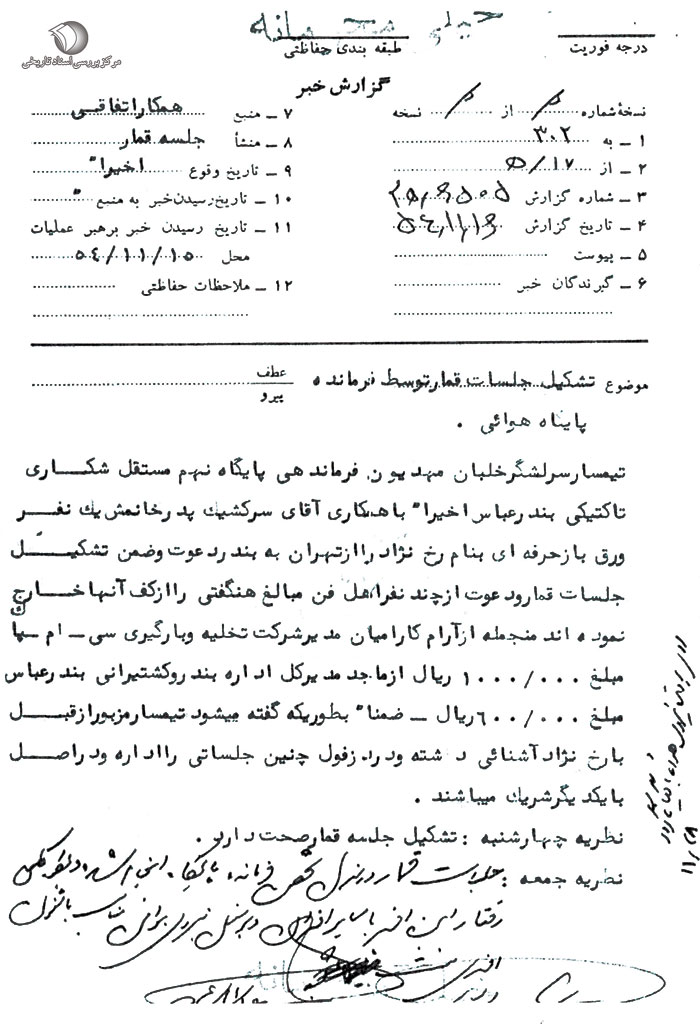 خیلی محرمانه
مرکز بررسی اسناد تاریخی
درجه فوریت
طبقه بندی حفاظتی
گزارش خبر
نسخهٔ شماره از نسخه
۱ ـ به ۳۰۲
۲ ـ از ۱۷/ه۵
۳ ـ شماره گزارش
۴ ـ تاریخ گزارش ۵۴/۱۱/۱۶
۵ ـ پیوست
۶ ـ گیرندگان خبر
۷ ـ منبع همکار اتفاقی
۸ ـ منشأ جلسه قمار
۹ ـ تاریخ وقوع اخیرا"
۱۰ ـ تاریخ رسیدن خبر به منبع "
۱۱ ـ تاریخ رسیدن خبر برهبر عملیات
محل ۵۴/۱۱/۱۵
۱۲ ـ ملاحظات حفاظتی
موضوع تشکیل جلسات قمار توسط فرمانده
عطف
پیرو
پایگاه هوائی .
تیمسار سرلشگر خلبان مهدیون فرماندهی پایگاه نهم مستقل شکاری
تاکتیکی بندرعباس اخیرا" با همکاری آقای سرکشیک پدر خانمش یك نفر
ورق باز حرفه ای بنام رخ نژاد را از تهران به بندر دعوت و ضمن تشکیل
جلسات قمار و دعوت از چند نفر اهل فن مبالغ هنگفتی را از کف آنها خارج
نموده اند منجمله از آرام کارامیان مدیر شرکت تخلیه و بارگیری سی ـ ام ـ پاك
مبلغ ۱۰۰۰/۰۰۰ ریال از ماجد مدیرکل اداره بندر و کشتیرانی بندرعباس
مبلغ ۶۰۰/۰۰۰ ریال ـ ضمنا" بطوریکه گفته میشود تیمسار مزبور از قبل
با رخ نژاد آشنائی داشته و در دزفول چنین جلساتی را اداره و در اصل
با یکدیگر شریك میباشند .
نظریه چهارشنبه : تشکیل جلسه قمار صحت دارد .
نظریه جمعه : جلسات قمار در منزل شخصی فرمانده پایگاه انجام شده و بطور کلی
رفتار این افسر با سایر افسران و پرسنل نیروی هوائی مناسب با شئون
افسری نیست
۱۱/۲۸